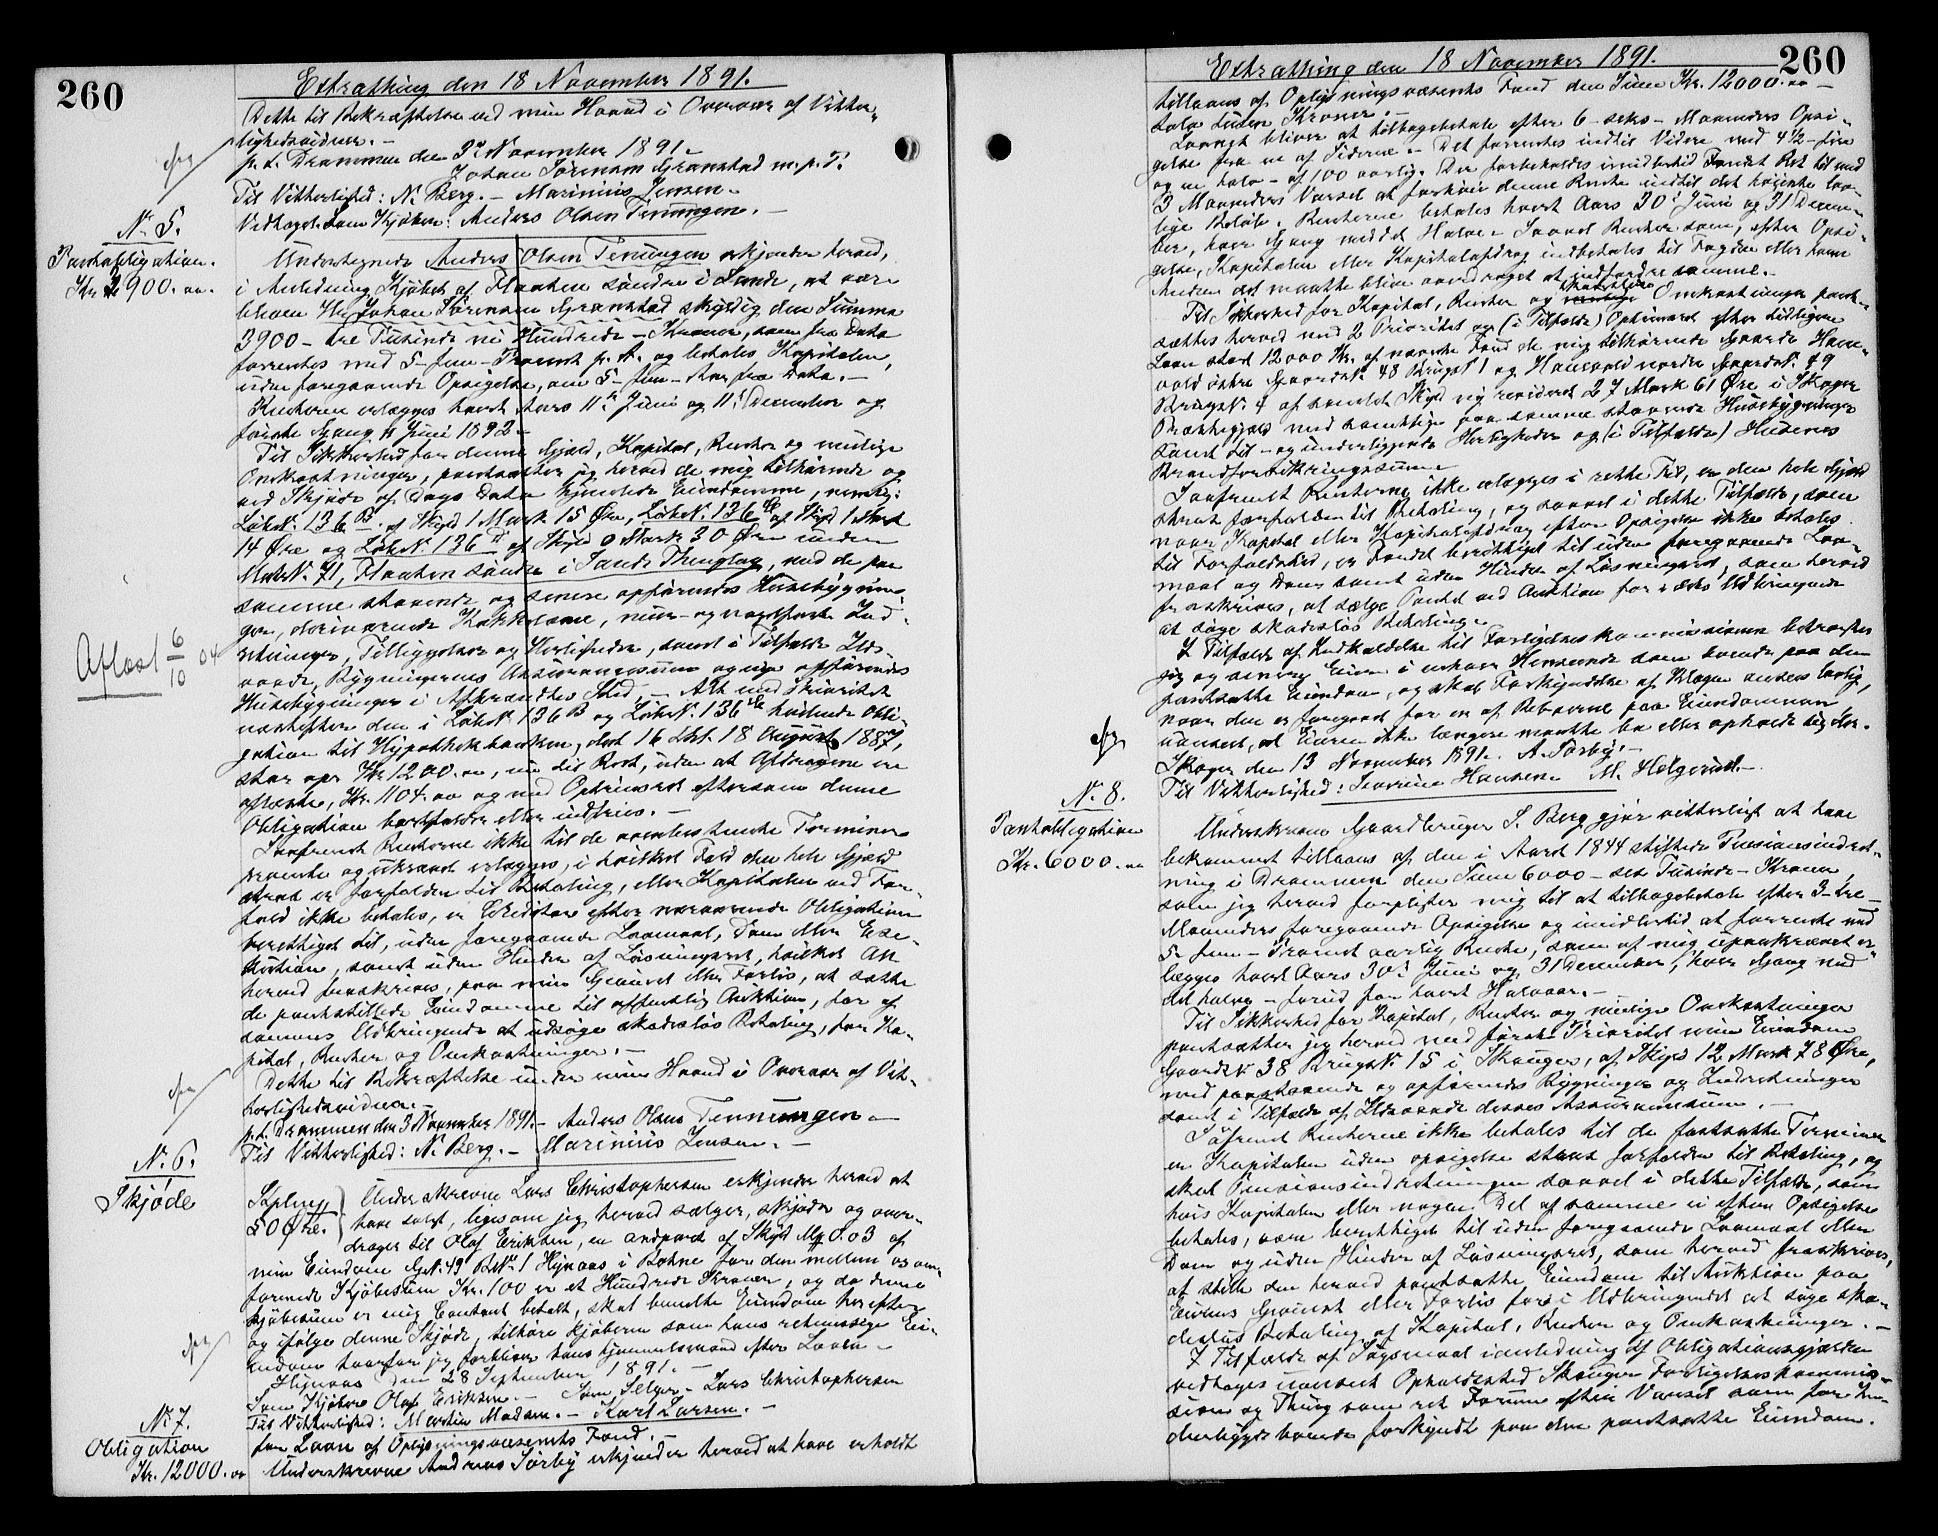 260
Extrathing den 18 November 1891.
Dette til Bekræftelse ved min Haand i Overvær af Vitter-
lighedsvidner. -
p. t. Drammen den 3' November 1891.
Johan Sörensen Granstad m. p. P.
Til Vitterlighed: N. Berg. - Marinius Jensen.
Vedtaget som Kjöber: Anders Olsen Tenningen. -
No 5.
Pantobligation.
Kr 3900. oo.
Undertegnede Anders Olsen Tenningen erkjender herved,
i Anledning Kjöbet af Flaaten söndre i Sande, at være
bleven Hr Johan Sörensen Granstad skyldig den Summa
3900 - tre Tusinde ni Hundrede - Kroner, som fra Dato
forrentes med 5 - fem - Procent p. A. og betales Kapitalen,
uden foregaaende Opsigelse, om 5 - fem - Aar fra Dato. -
Renterne erlægges hvert Aars 11' Juni og 11' December og
förste Gang 11 Juni 1892. -
Til Sikkerhed for denne Gjæld, Kapital, Renter og mulige
Omkostninger, pantsætter jeg herved de mig tilhörende og
ved Skjöde af Dags Dato hjemlede Eiendomme, nemlig:
LöbeNo. 136 B af Skyld 1 Mark 15 Öre, LöbeNo. 136 af Skyld 1 Mark
14 Öre og LöbeNo. 136 af Skyld 0 Mark 30 Öre under
MatrNo. 71, Flaaten söndre i Sande Thinglag, med de paa
samme staaende og senere opförendes Husebygnin-
ger, derinværende Kakkelovne, mur- og nagelfaste Ind-
retninger, Tilliggelser og Herligheder, samt i Tilfælde Ilds-
vaade, Bygningernes Assurancesum og nye opförendes
Husebygninger i Afbrændtes Sted. - Alt med Prioritet
næstefter den i LöbeNo 136 B og LöbeNo. 136 heftende Obli-
gation til Hypothekbanken, dat 16 18 August 1887,
stor opr. Kr 1200. oo, nu til Rest, uden at Afdragene ere
aflæste, Kr. 1104. oo og med Oprykningsret eftersom denne
Obligation bortfalder eller indfries. -
Aflæst 6/10 04
Saafremt Renterne ikke til de nævnte Terminer
prompte og ukrævet erlægges, i hvilket Fald den hele Gjæld
strax er forfalden til Betaling, eller Kapitalen ved For-
fald ikke betales, er Creditor efter nærværende Obligation
berettiget til, uden foregaaende Lovmaal, Dom eller Exe-
kution, samt uden Hinder af Lösningsret, hvilket Alt
herved fraskrives, paa min Gevinst eller Forlis, at sætte
de pantstillede Eiendomme til offentlig Auktion, for af
sammes Udbringende at udsöge skadeslös Betaling, for Ka-
pital, Renter og Omkostninger. -
Dette til Bekræftelse under min Haand i Overvær af Vit-
terlighedsvidner. -
p. t. Drammen den 3 November 1891. - Anders Olsen Tenningen. -
Til Vitterlighed: N. Berg. - Marinius Jensen. -
No. 6.
Skjöde
Stplmrk
50 Öre.
Underskrevne Lars Christophersen erkjender herved at
have solgt, ligesom jeg herved sælger, skjöder og over-
drager til Olaf Eriksen, en andpart af Skyld Mk 0.03 af
min Eiendom GNo. 49 BNo. 1 Hynaas i Botne for den mellem os om-
forenede Kjöbesum Kr. 100 er et Hundrede Kroner, og da denne
Kjöbesum er mig Contant betalt, skal bemeldte Eiendom herefter
og ifölge denne Skjöde, tilhöre Kjöberen som hans retmæssige Ei-
endom hvorfor jeg forbliver hans hjemmelsmand efter Loven. -
Hynaas den 28 September 1891. -
Som Kjöber Olaf Eriksen. - Som Selger - Lars Christophersen
Til Vitterlighed: Martin Madsen. - Karl Larsen. -
No 7.
Obligation
Kr. 12000. oo
for Laan af Oplysningsvæsenets Fond. -
Underskrevne Andreas Sörby erkjender herved at have erholdt
260
Extrathing den 18 November 1891.
tillaans af Oplysningsvæsenets Fond den Sum Kr. 12000. oo -
tolv tusen Kroner. -
Laanet bliver at tilbagebetale efter 6 - seks - Maaneders Opsi-
gelse fra en af Siderne. - Det forrentes indtil Videre med 4 1/2 - fire
og en halv - af 100 aarlig. Der forbeholdes imidlertid Fondet Ret til med
3 Maaneders Varsel at forhöie denne Rente indtil det höieste lov-
lige Belöb. Renterne betales hvert Aars 30' Juni og 31 Decem-
ber, hver Gang med det Halve. Saavel Renter som, efter Opsi-
gelse, Kapitalen eller Kapitalafdrag indbetales til Fogden eller hvem
Anden det maatte blive overdraget at indfordre samme. -
Til Sikkerhed for Kapital, Renter og skadeslöse Omkostninger pant-
sættes herved med 2 Prioritet og (i Tilfælde) Oprykningsret efter tidligere
Laan stort 12000 Kr. af nævnte Fond de mig tilhörende Gaarde Hane-
vold östre GaardsNo. 48 BrugsNo 1 og Hanevold nordre GaardsNo. 49
BrugsNo. 4 af samlet Skyld ny revideret 27 Mark 61 Öre i Skoger
Præstegjæld med samtlige paa samme staaende Husebygninger
samt til- og underliggende Herligheder og (i Tilfælde) Husenes
Brandforsikringssum. -
Saafremt Renterne ikke erlægges i rette Tid, er den hele Gjæld
strax forfalden til Betaling, og saavel i dette Tilfælde, som
naar Kapital eller Kapitalafdrag efter Opsigelse ikke betales
til Forfaldstid, er Fondet berettiget til uden foregaaende Lov-
maal og Dom samt uden Hinder af Lösningsret, som herved
fraskrives, at sælge Pantet ved Auktion for i dets Udbringende
at söge skadeslös Betaling. -
I Tilfælde af Indkaldelse til Forligelseskommissionen betragtes
jeg og senere Eiere i enhver Henseende som boende paa den
pantsatte Eiendom, og skal Forkyndelse af Klagen ansees lovlig,
naar den er foregaaet for en af Beboerne paa Eiendommen,
uanset, at Eieren ikke længere maatte bo eller opholde sig der.
Skoger den 13 November 1891. A. Sörby. -
Til Vitterlighed: Severine Hansen. M. Helgerud. -
No. 8.
Pantobligation
Kr. 6000. oo
Underskrevne Gaardbruger S. Berg gjör vitterligt at have
bekommet tillaans af den i Aaret 1844 stiftede Pensionsindret-
ning i Drammen den Sum 6000 - sex Tusinde - Kroner,
som jeg herved forpligter mig til at tilbagebetale efter 3 - tre -
Maaneders foregaaende Opsigelse og imidlertid at forrente med
5 - fem - Procent aarlig Rente, som af mig upaakrævet er-
lægges hvert Aars 30' Juni og 31 December, hver Gang med
det halve - forud for hvert Halvaar. -
Til Sikkerhed for Kapital, Renter og mulige Omkostninger
pantsætter jeg herved med förste Prioritet min Eiendom
GaardsNo 38 BrugsNo 15 i Skauger, af Skyld 12 Mark 78 Öre,
med paastaaende og opförendes Bygninger og Indretninger
samt i Tilfælde af Ildsvaade dennes Assurancesum. -
Saafremt Renterne ikke betales til de fastsatte Terminer
er Kapitalen uden opsigelse straks forfalden til Betaling, og
skal Pensionsindretningen saavel i dette Tilfælde, som
hvis Kapitalen eller nogen Del af samme ei efter Opsigelse
betales, være berettiget til uden foregaaende Lovmaal eller
Dom og uden Hinder af Lösningsret, som herved fraskrives,
at stille den herved pantsatte Eiendom til Auktion paa
Eierens Gevinst eller Forlis for i Udbringendet at söge ska-
deslös Betaling af Kapital, Renter og Omkostninger. -
I Tilfælde af Sögsmaal i anledning af Obligationsgjælden
vedtages uanset Opholdssted Skauger Forligelseskommis-
sion og Thing som ret Forum efter Varsel som for In-
denbygds boende forkyndt paa den pantsatte Eiendom.